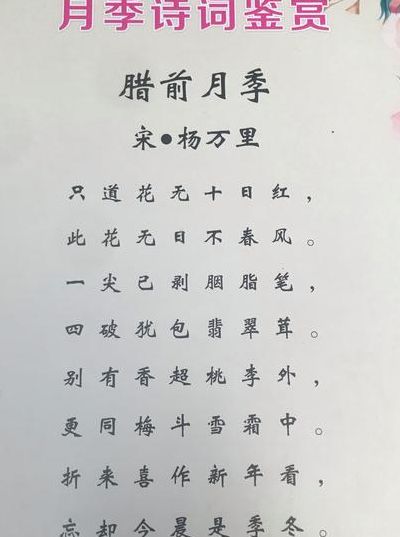 月季诗词鉴赏
腊前月季
宋●杨万里
只道花无十日红，
此花无日不春风。
一尖已剥胭脂笔，
四破犹包翡翠茸。
别有香超桃李外，
更同梅斗雪霜中。
折来喜作新年看，
忘却今晨是季冬。